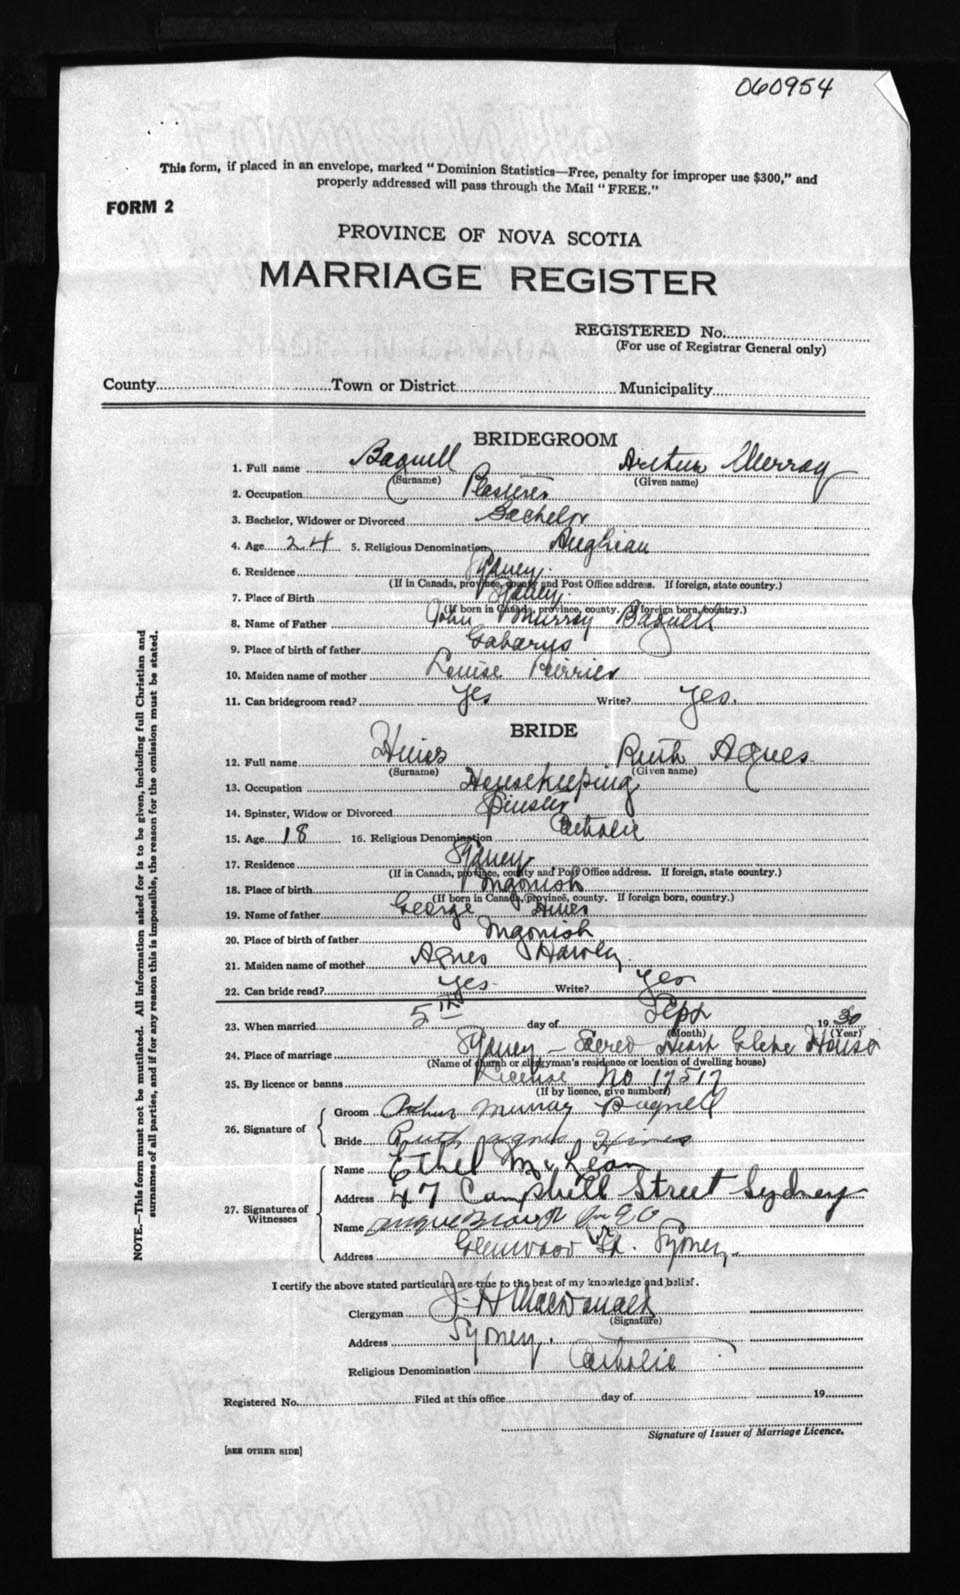 060954
This form, if placed in an envelope, marked "Dominion Statistics—Free, penalty for improper use $300," and
properly addressed will pass through the Mail "FREE."
FORM 2
PROVINCE OF NOVA SCOTIA
MARRIAGE REGISTER
REGISTERED No.
(For use of Registrar General only)
County Town or District Municipality
BRIDEGROOM
1. Full name Bagnell Arthur Murray
(Surname) (Given name)
2. Occupation Plasterer
3. Bachelor, Widower or Divorced Bachelor
4. Age 24 5. Religious Denomination Anglican
6. Residence Sydney.
(If in Canada, province, county and Post Office address. If foreign, state country.)
7. Place of Birth Sydney.
(If born in Canada, province, county. If foreign born, country.)
8. Name of Father John Murray Bagnell
9. Place of birth of father Gabarus
10. Maiden name of mother Louise
11. Can bridegroom read? Yes Write? Yes.
BRIDE
12. Full name Hines Ruth Agnes
(Surname) (Given name)
13. Occupation Housekeeping
14. Spinster, Widow or Divorced
15. Age 18 16. Religious Denomination Catholic
17. Residence Sydney
(If in Canada, province, county and Post Office address. If foreign, state country.)
18. Place of birth Ingonish
(If born in Canada, province, county. If foreign born, country.)
19. Name of father George Hines
20. Place of birth of father Ingonish
21. Maiden name of mother Agnes
22. Can bride read? Yes. Write? Yes
23. When married 5th day of Sept 1930
(Month) (Year)
24. Place of marriage Sydney — Sacred Heart Glebe House
(Name of church or clergyman's residence or location of dwelling house)
25. By licence or banns License No 17517
(If by licence, give number)
26. Signature of
Groom Arthur Murray Bagnell
Bride Ruth Agnes Hines
27. Signatures of Witnesses
Name Ethel McLean
Address 47 Campbell Street Sydney
Name
Address Glenwood St. Sydney.
I certify the above stated particulars are true to the best of my knowledge and belief.
Clergyman J. H. MacDonald
(Signature)
Address Sydney.
Religious Denomination Catholic
Registered No. Filed at this office day of 19
Signature of Issuer of Marriage Licence.
[SEE OTHER SIDE]
NOTE.—This form must not be mutilated. All information asked for is to be given, including full Christian and
surnames of all parties, and if for any reason this is impossible, the reason for the omission must be stated.